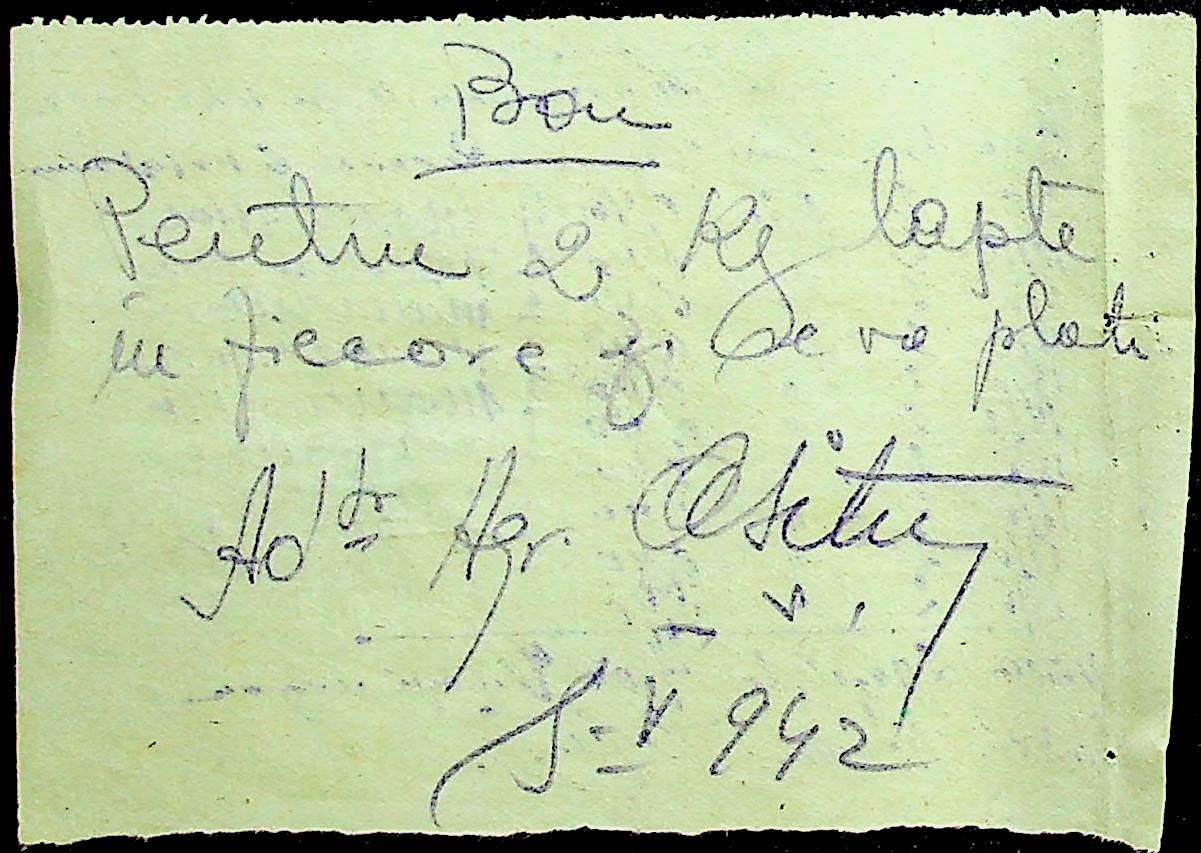 Bon
Pentru 2 Kg lapte
in fiecare zi se va plati
Ad-tr Agr.
5-V 942